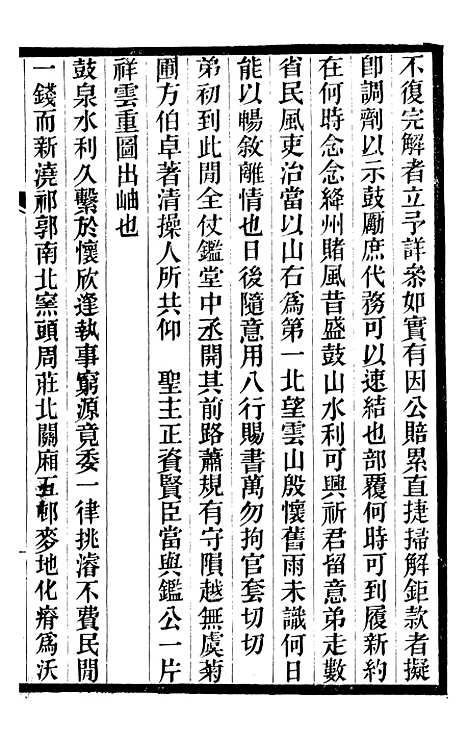 不復完解者立予詳參如實有因公賠累直捷掃解鉅款者擬
卽調劑以示鼓勵庶代務可以速結也部覆何時可到履新約
在何時念念絳州賭風昔盛鼓山水利可興祈君留意弟走數
省民風吏治當以山右爲第一北望雲山殷懷舊雨未識何日
能以暢敘離情也日後隨意用八行賜書萬勿拘官套切切
弟初到此間全仗鑑堂中丞開其前路蕭規有守隕越無虞菊
圃方伯卓著清操人所共仰　聖主正資賢臣當與鑑公一片
祥雲重圖出岫也
鼓泉水利久繫於懷欣逢執事窮源竟委一律挑濬不費民間
一錢而新澆祁郭南北窯頭周莊北關廂五邨麥地化瘠爲沃